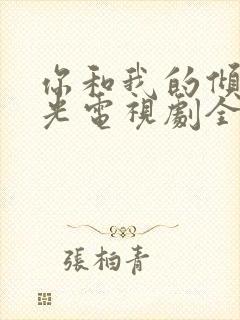 你和我的傾
光電視劇全
張柏青